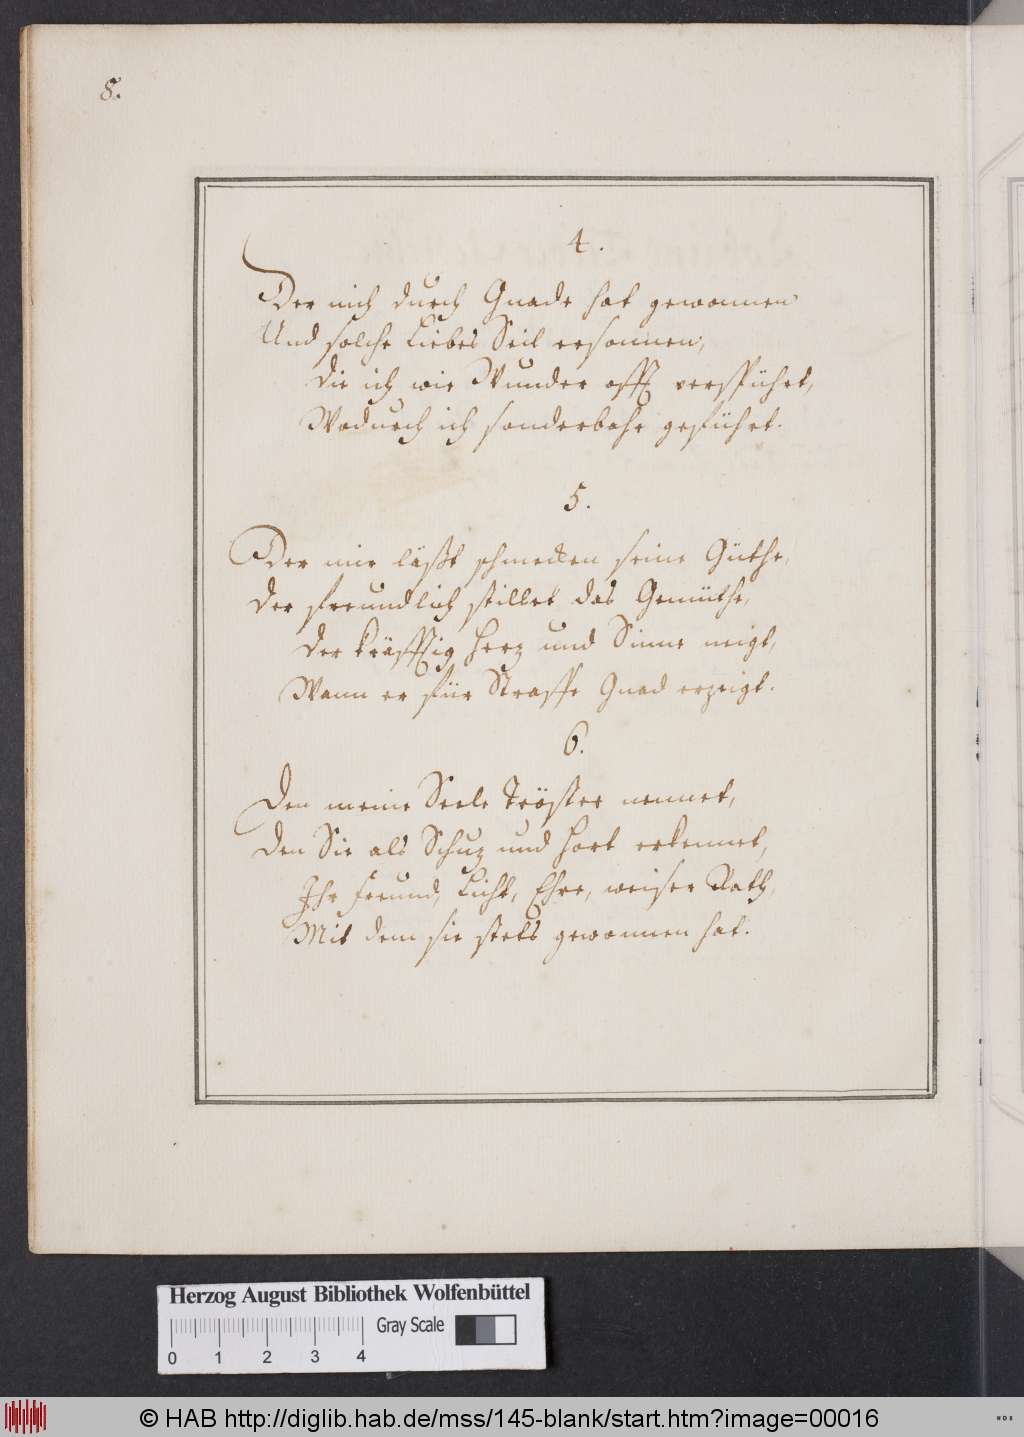 8.
4.
Der mich durch Gnade hat gewonnen
Und solche Liebes Seil ersonnen,
Die ich wie Wunder offt verspührt,
Wodurch ich sonderbahr geführt.
5.
Der mir läßt schmecken seine Güthe,
Der freundlich stillet das Gemüthe,
Der kräfftig Herz und Sinne neigt,
Wann er für Straffe Gnad erzeigt.
6.
Den meine Seele Tröster nennet,
Den Sie als Schuz und Hort erkennet,
Ihr Freund, Licht, Ehre, weiser Rath,
Mit dem sie stets gewonnen hat.
Herzog August Bibliothek Wolfenbüttel
Gray Scale
0 1 2 3 4
© HAB http://diglib.hab.de/mss/145-blank/start.htm?image=00016